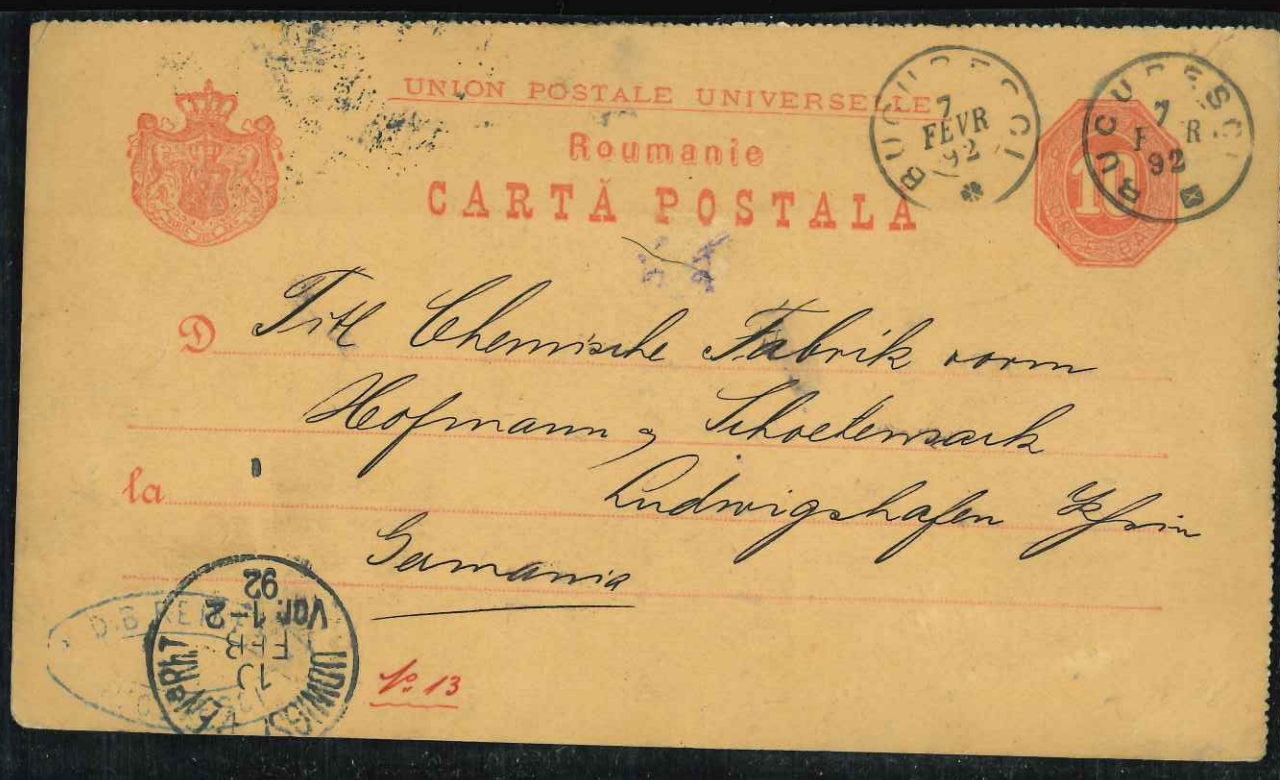 UNION POSTALE UNIVERSELLE
Roumanie
CARTĂ POSTALA
BUCURESCI
7
FEVR
92
BUCURESCI
7
F R
92
10
D
Titl Chemische Fabrik vorm
Hofmann & Schoetensack
la
Ludwigshafen a/Rhein
Germania
92
Vor. 1-2
FEB
10
No 13